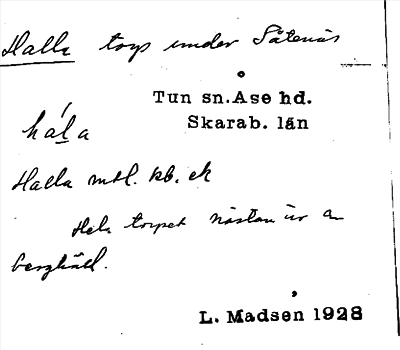 Halla torp under Såtenäs
Tun sn. Åse hd.
Skarab. län
hála
Halla mtl. kb. ek
Hela torpet nästan är en
berghäll.
L. Madsen 1928